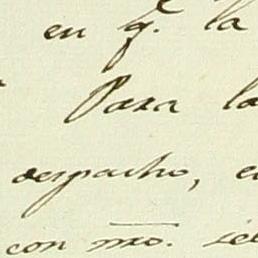 en q.e la
Para la
despacho, e
con mro.